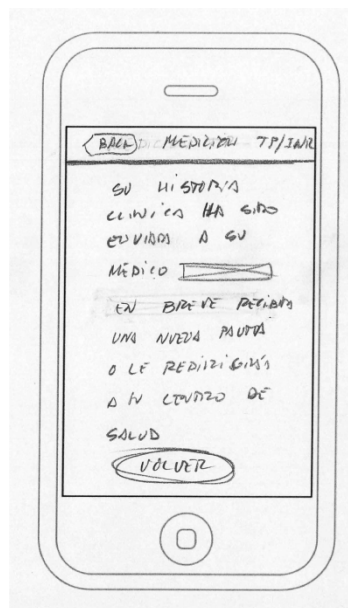 BACK MEDICIÓN TP/INR
SU HISTORIA
CLINICA HA SIDO
ENVIADA A SU
MÉDICO
EN BREVE RECIBIRÁ
UNA NUEVA PAUTA
O LE REDIRIGIRÁS
A TU CENTRO DE
SALUD
VOLVER